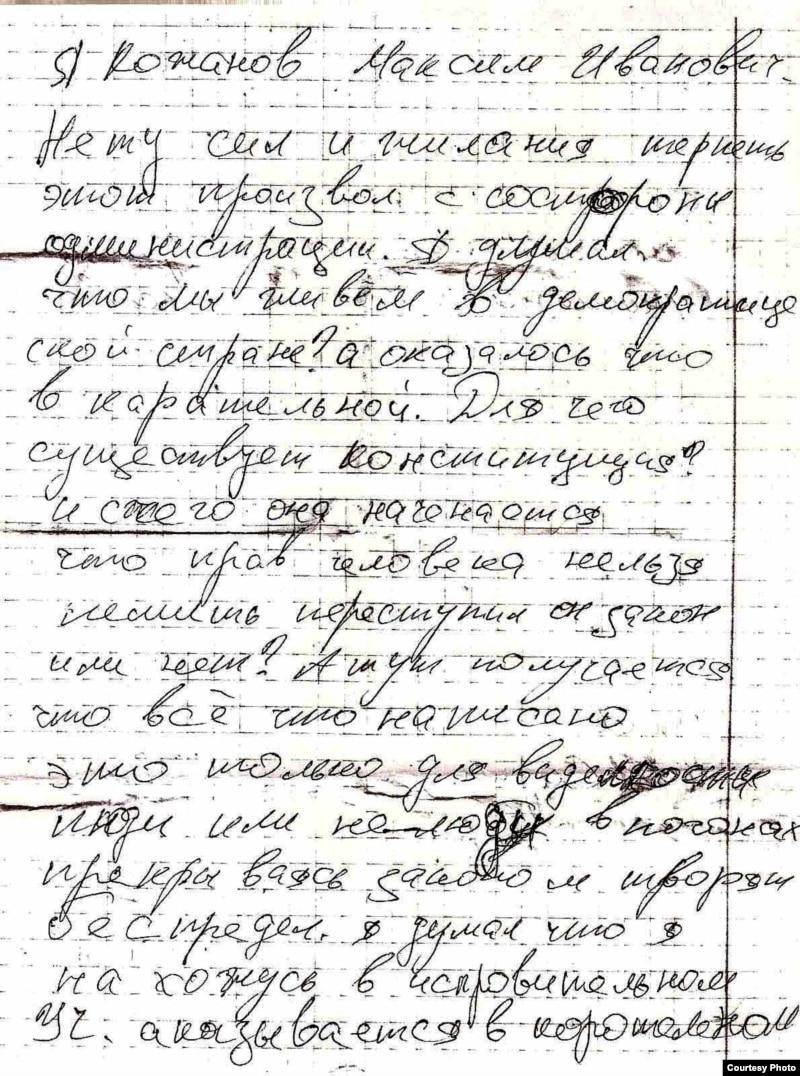 Я Кожанов Максим Иванович.
Нету сил и жилания терпеть
этот произвол с состороны
одминистрации. Я думал
что мы живём в демократице
ской стране? а оказалось что
в карательной. Для чего
существует конституция?
и с чего она наченается
что прав человека нельзя
лешить переступил он закон
или нет? А тут получается
что всё что написано
это только для виде
люди или не люди в погонах
прекрываясь законом творят
беспредел. я думал что я
на хожусь в исправительном
Уч. аказывается в корательном
Courtesy Photo